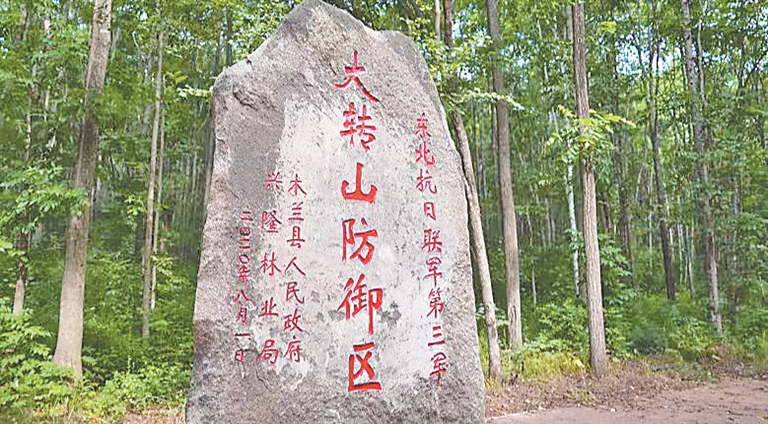 东北抗日联军第三军
大转山防御区
木兰县人民政府
兴隆林业局
二〇二〇年八月一日